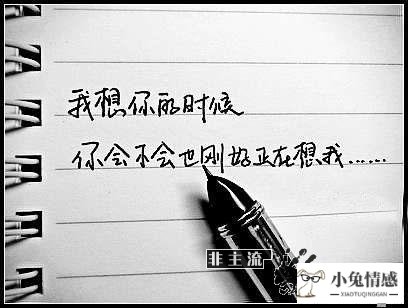 我想你的时候
你会不会也刚好正在想我……
非主流
小兔情感
XIAOTUQINGGAN